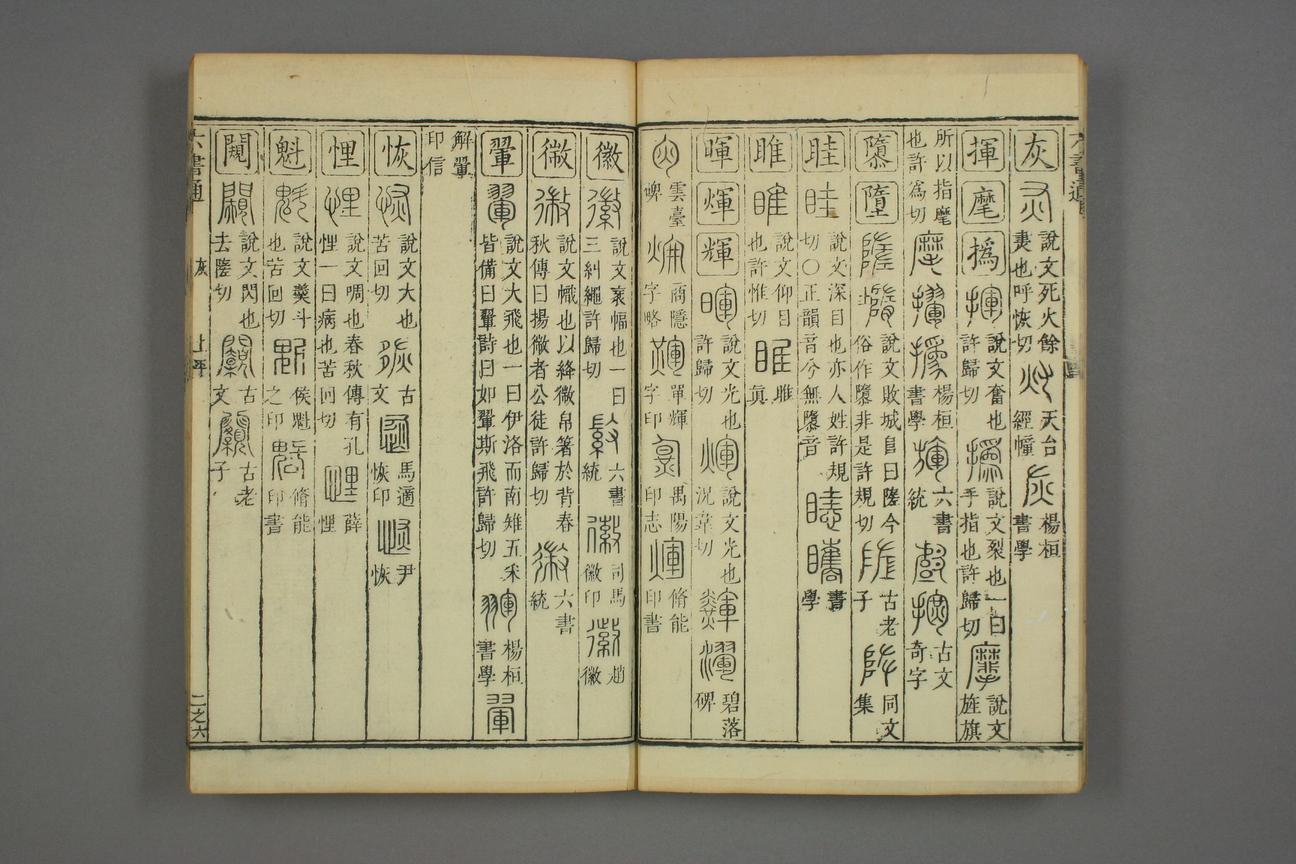 灰 說文死火餘㶳也呼恢切 天台經幢 楊桓書學
揮 麾 撝 說文奮也許歸切 說文裂也一曰手指也許歸切 說文旌旗
所以指麾也許為切 楊桓書學 六書統 古文奇字
隳 墮 說文敗城𨸏曰隓今俗作隳非是許規切 古老子 同文集
眭 說文深目也亦人姓許規切〇正韻音兮無隳音 書學
睢 說文仰目也許惟切 睢眞
暉 煇 輝 說文光也許歸切 說文光也況韋切 碧落碑
雲臺碑 商隱字略 單輝字印 禺陽印志 脩能印書
徽 說文衺幅也一曰三糾繩許歸切 六書統 司馬徽印 趙徽
微 說文幟也以絳微帛箸於背春秋傳曰揚微者公徒許歸切 六書統
翬 說文大飛也一曰伊洛而南雉五采皆備曰翬詩曰如翬斯飛許歸切 楊桓書學
解翬印信
恢 說文大也苦回切 古文 馬適恢印 尹恢
悝 說文啁也春秋傳有孔悝一曰病也苦回切 薛悝
魁 說文羹斗也苦回切 侯魁之印 脩能印書
闚 說文閃也去隓切 古文 古老子
六書通 灰 上平 二之六